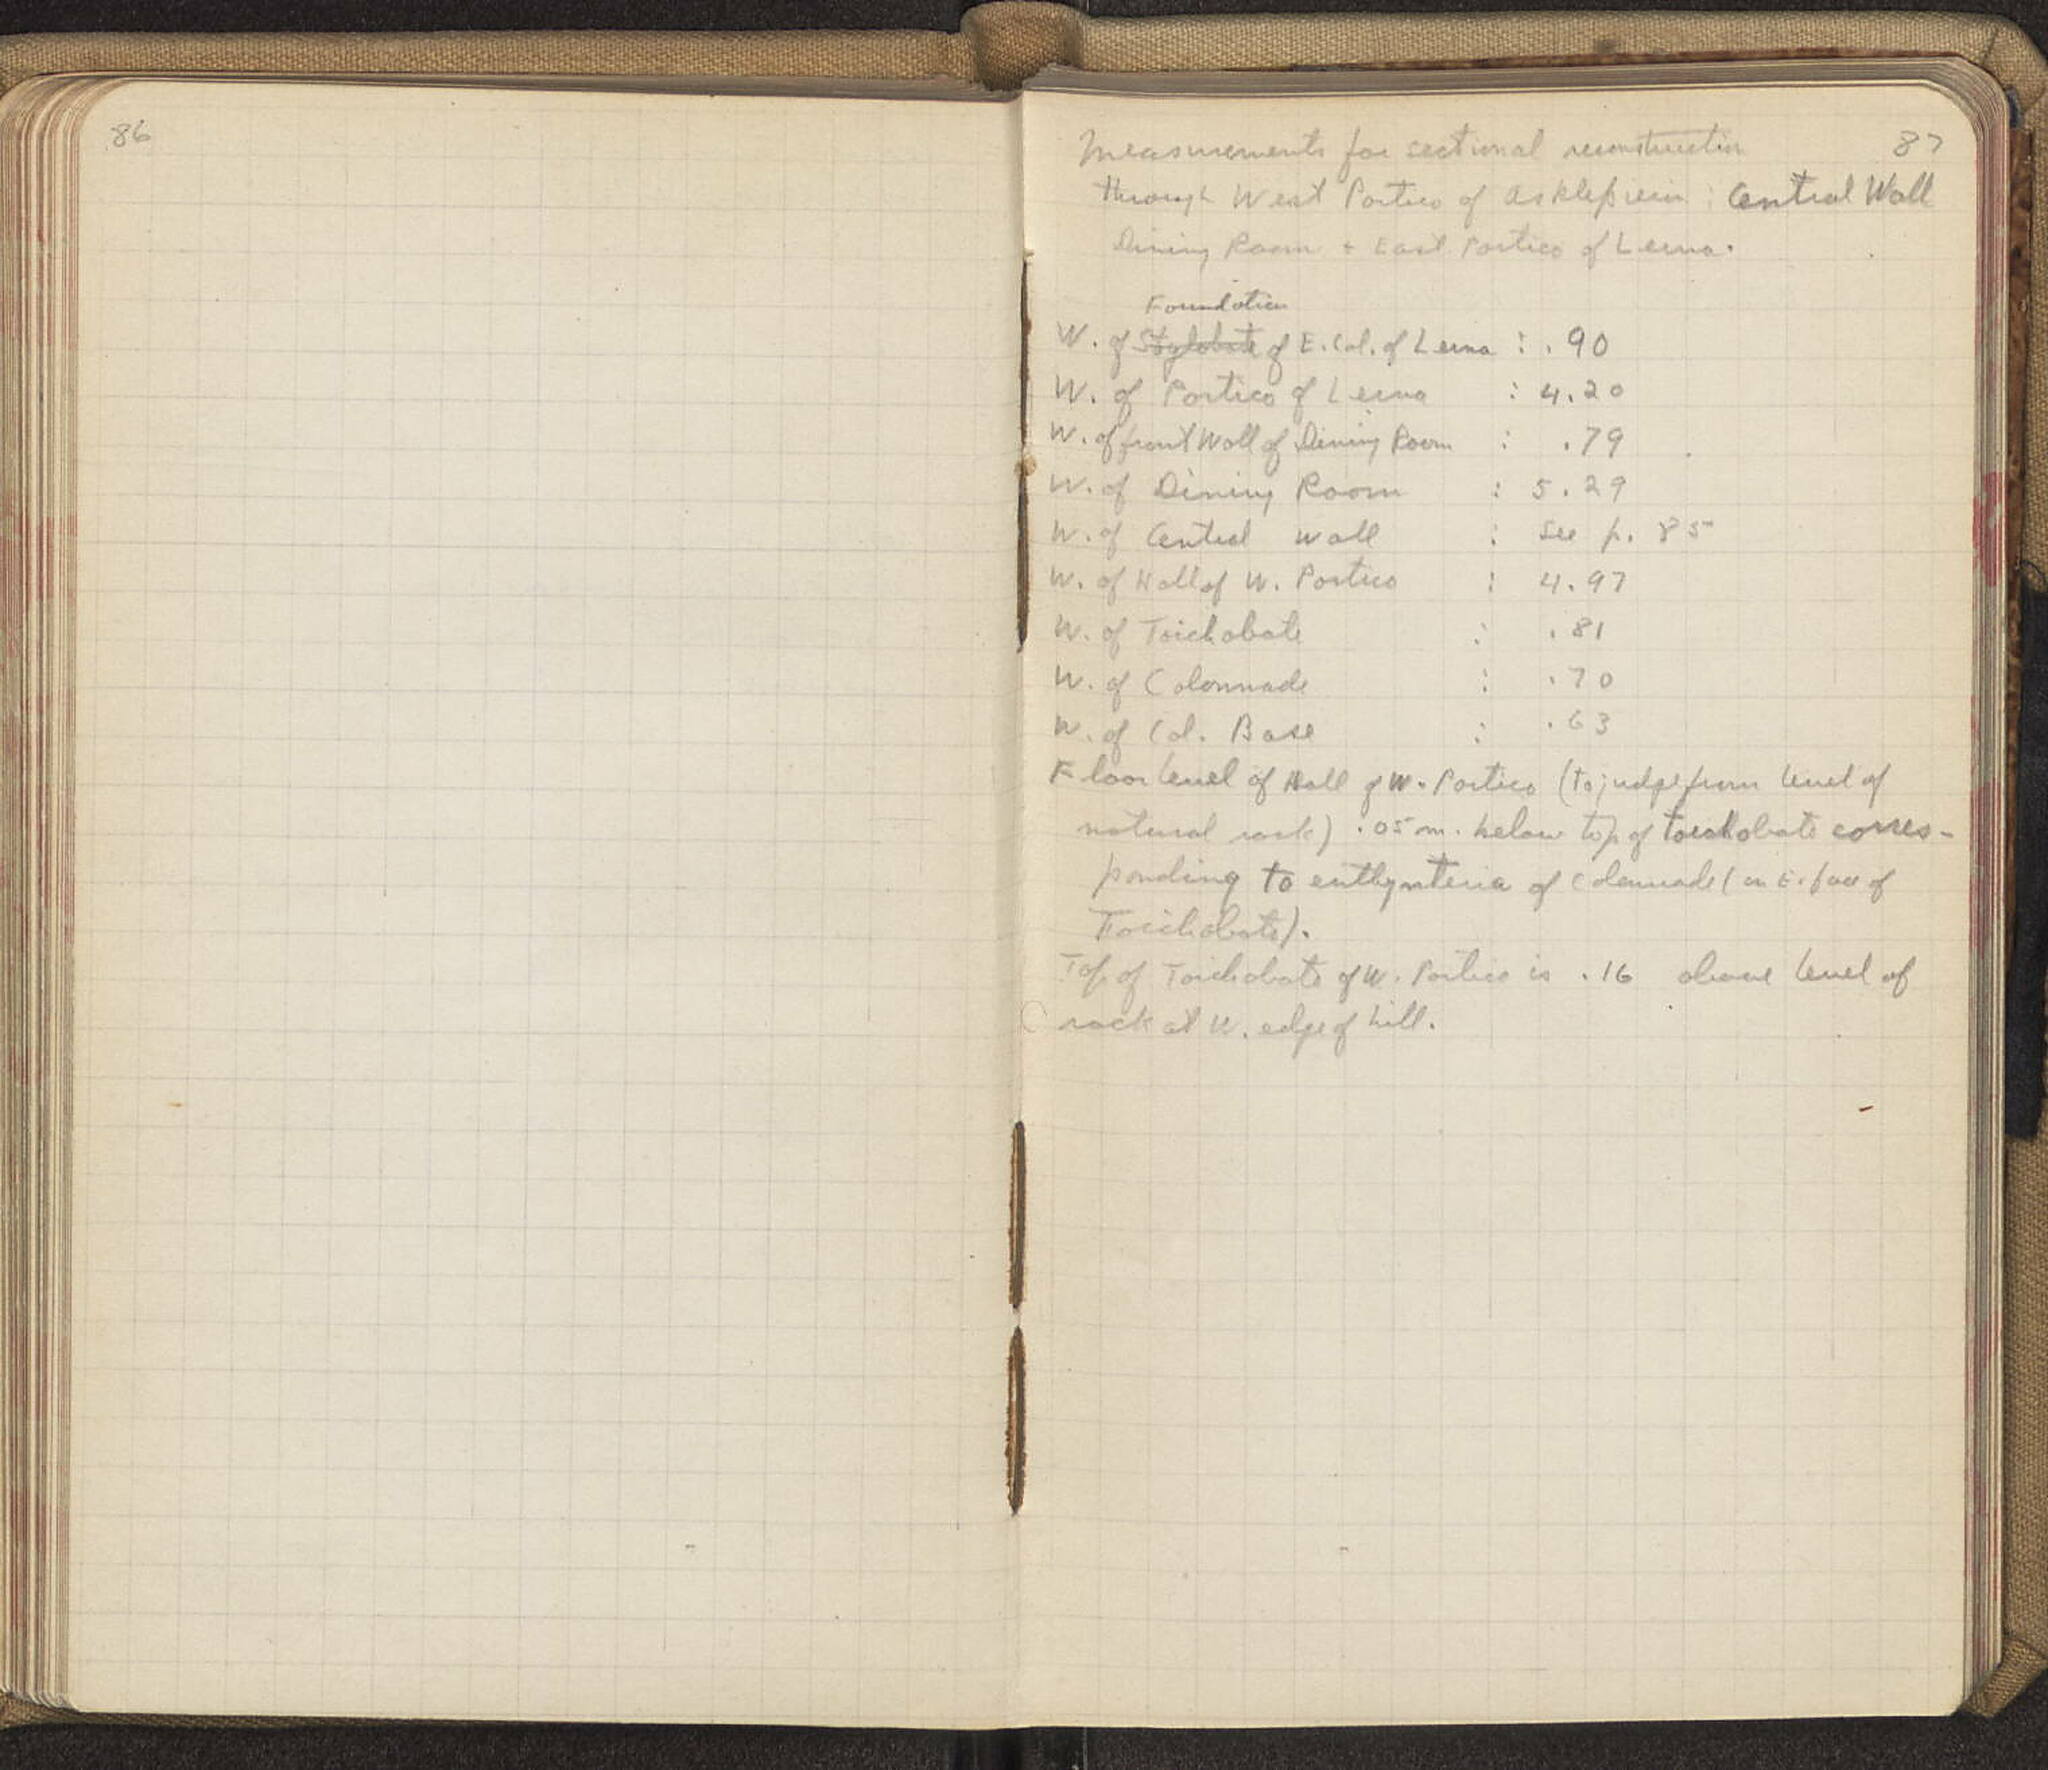 86
87
Measurements for sectional reconstruction
through West Portico of Asklepieion : Central Wall
Dining Room + East Portico of Lerna.
Foundation
W. of Stylobate of E. Col. of Lerna : .90
W. of Portico of Lerna : 4.20
W. of front Wall of Dining Room : .79
W. of Dining Room : 5.29
W. of Central Wall : See p. 85
W. of Hall of W. Portico : 4.97
W. of Toichobate : .81
W. of Colonnade : .70
W. of Col. Base : .63
Floor level of Hall of W. Portico (to judge from level of
natural rock) .05 m. below top of toichobate corres-
ponding to euthynteria of Colonnade (on E. face of
Toichobate).
Top of Toichobate of W. Portico is .16 above level of
rock at W. edge of hill.